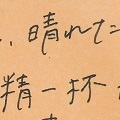 、晴れた
精一杯